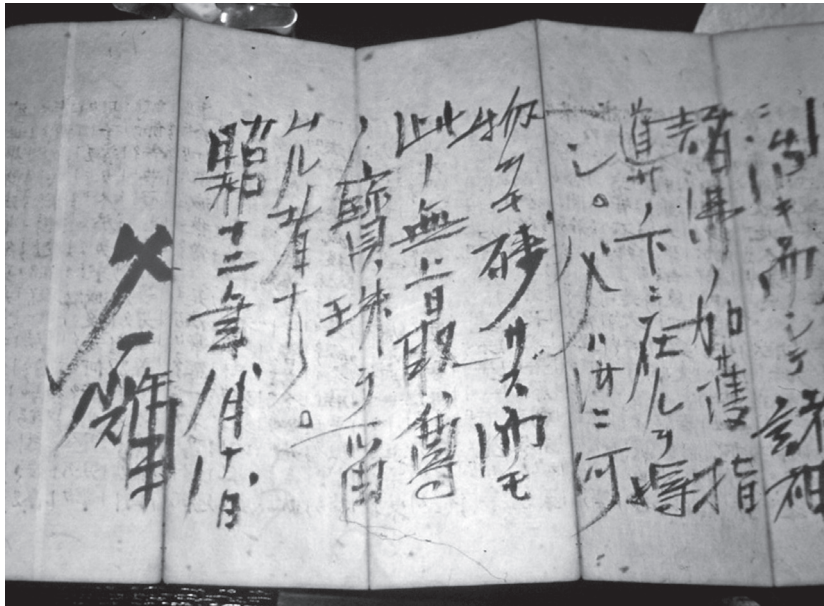 而シテ諸祖
諸佛ノ加護指
導ノ下ニ在ルヲ得
ベシ。父ハ汝ニ何
物ヲモ残サズ而モ
此ノ無上最尊
ノ寶珠ヲ留
ムル者ナリ。
昭和十二年八月十八日
父 一輝